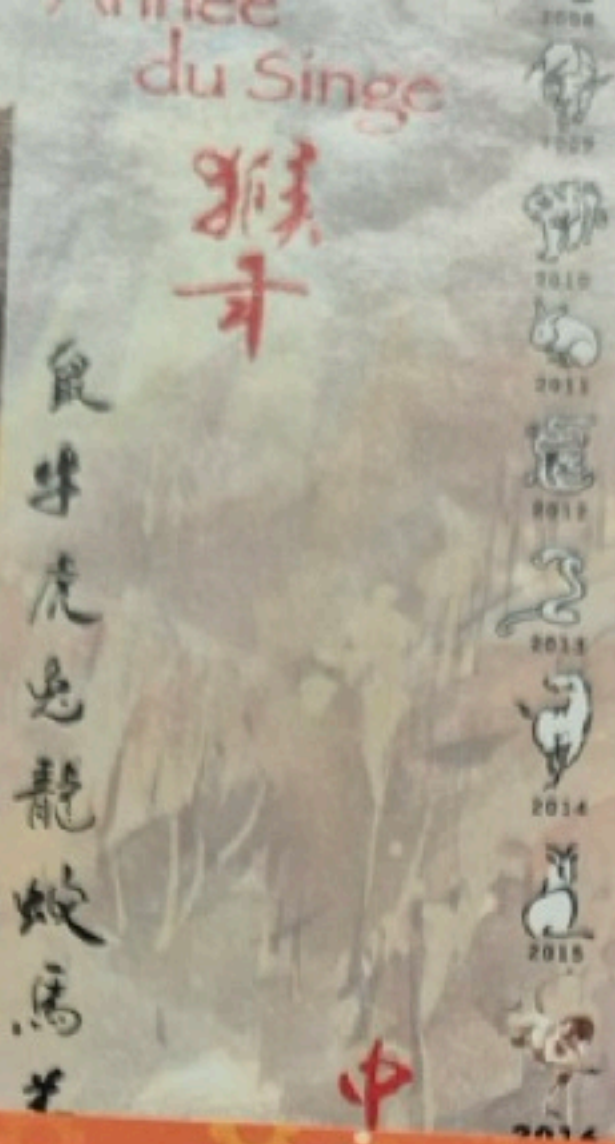 Année
du Singe
猴
年
鼠
牛
虎
兔
龍
蛇
馬
羊
中
2008
2009
2010
2011
2012
2013
2014
2015
2016